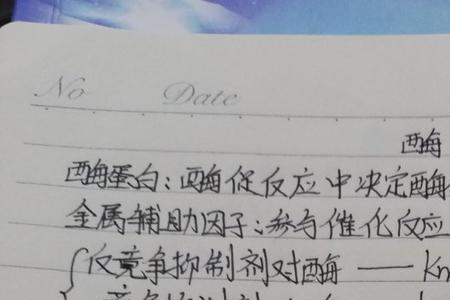 No Date
酶
酶蛋白：酶促反应中决定酶
金属辅助因子：参与催化反应
反竞争抑制剂对酶 — Km